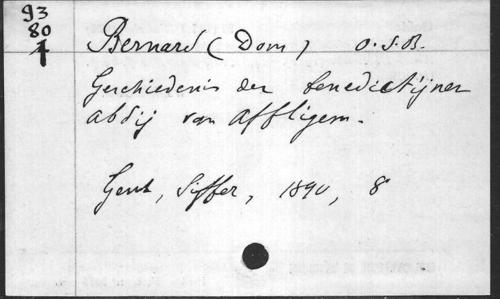 93
80
1
Bernard (Dom) O.S.B.
Geschiedenis der benedictijner
abdij van Affligem.
Gent, Siffer, 1890, 8°